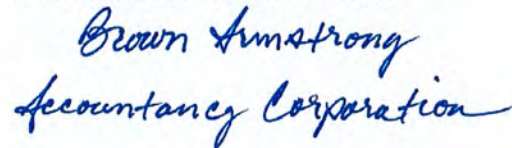 Brown Armstrong
Accountancy Corporation